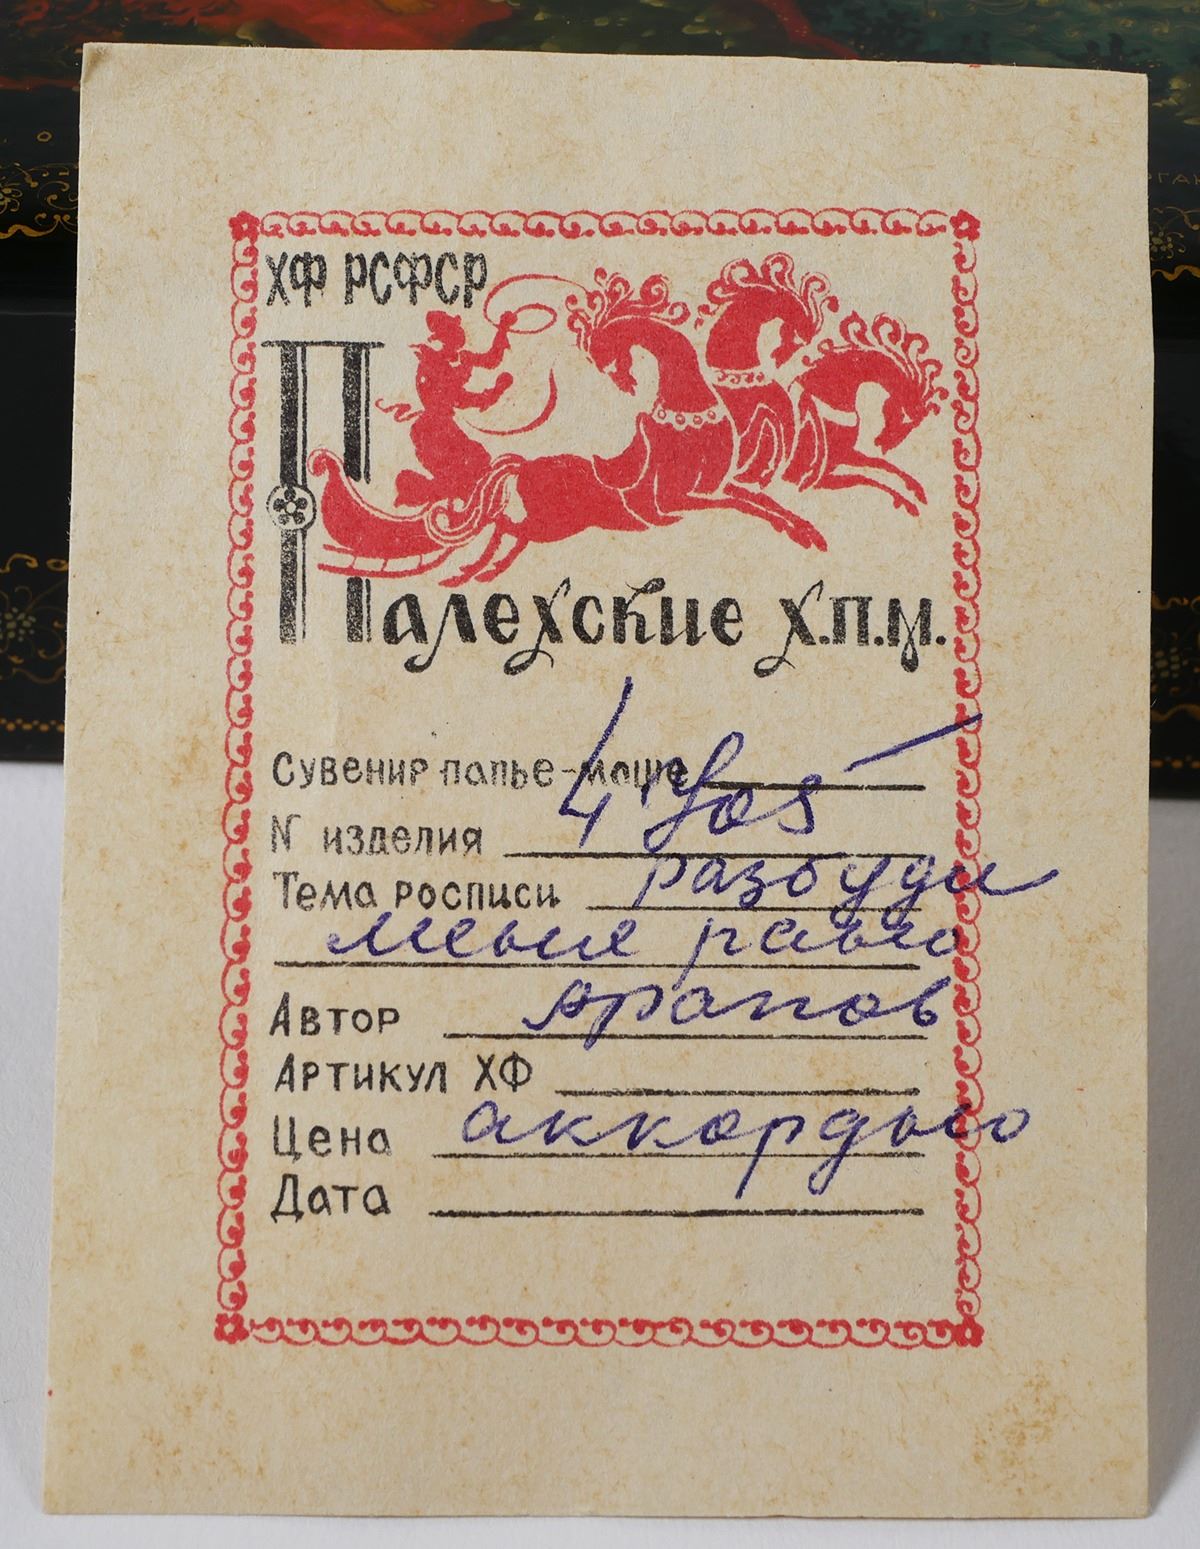 ХФ РСФСР
Палехские Х.П.М.
Сувенир папье-маше
N изделия
Тема росписи разбуди
меня рано
Автор Арапов
Артикул ХФ
Цена аккордно
Дата